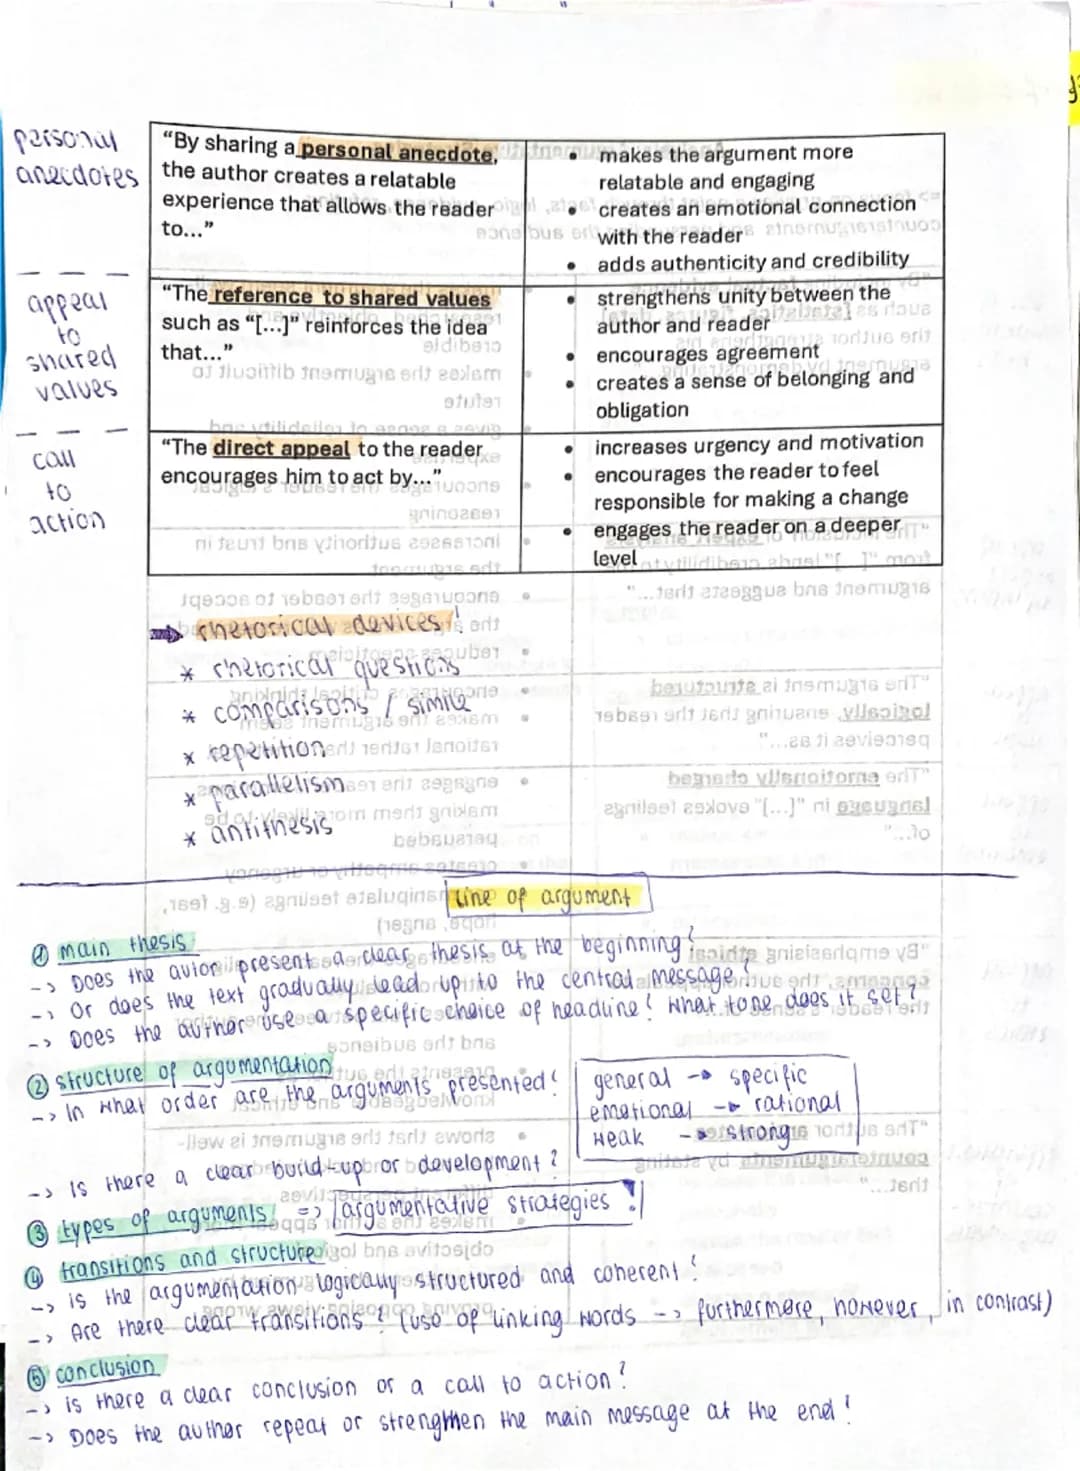 personal
anecdotes
"By sharing a personal anecdote,
the author creates a relatable
experience that allows the reader
to..."
• makes the argument more
relatable and engaging
• creates an emotional connection
with the reader
• adds authenticity and credibility
appeal
to
shared
values
"The reference to shared values
such as "[...]" reinforces the idea
that..."
• strengthens unity between the
author and reader
• encourages agreement
• creates a sense of belonging and
obligation
call
to
action
"The direct appeal to the reader
encourages him to act by..."
• increases urgency and motivation
• encourages the reader to feel
responsible for making a change
• engages the reader on a deeper
level
rhetorical devices!
* rhetorical questions
* comparisons / simile
* repetition
* parallelism
* antithesis
line of argument
① main thesis
-> Does the autor present a clear thesis at the beginning?
-> Or does the text gradually lead up to the central message?
-> Does the author use a specific choice of headline? What tone does it set?
② structure of argumentation
-> In what order are the arguments presented?
general -> specific
emotional -> rational
weak -> strong
-> Is there a clear build-up or development?
③ types of arguments => argumentative strategies!
④ transitions and structure
-> is the argumentation logically structured and coherent?
-> Are there clear transitions? (use of linking words -> furthermore, however, in contrast)
⑤ conclusion
-> is there a clear conclusion or a call to action?
-> Does the author repeat or strengthen the main message at the end?